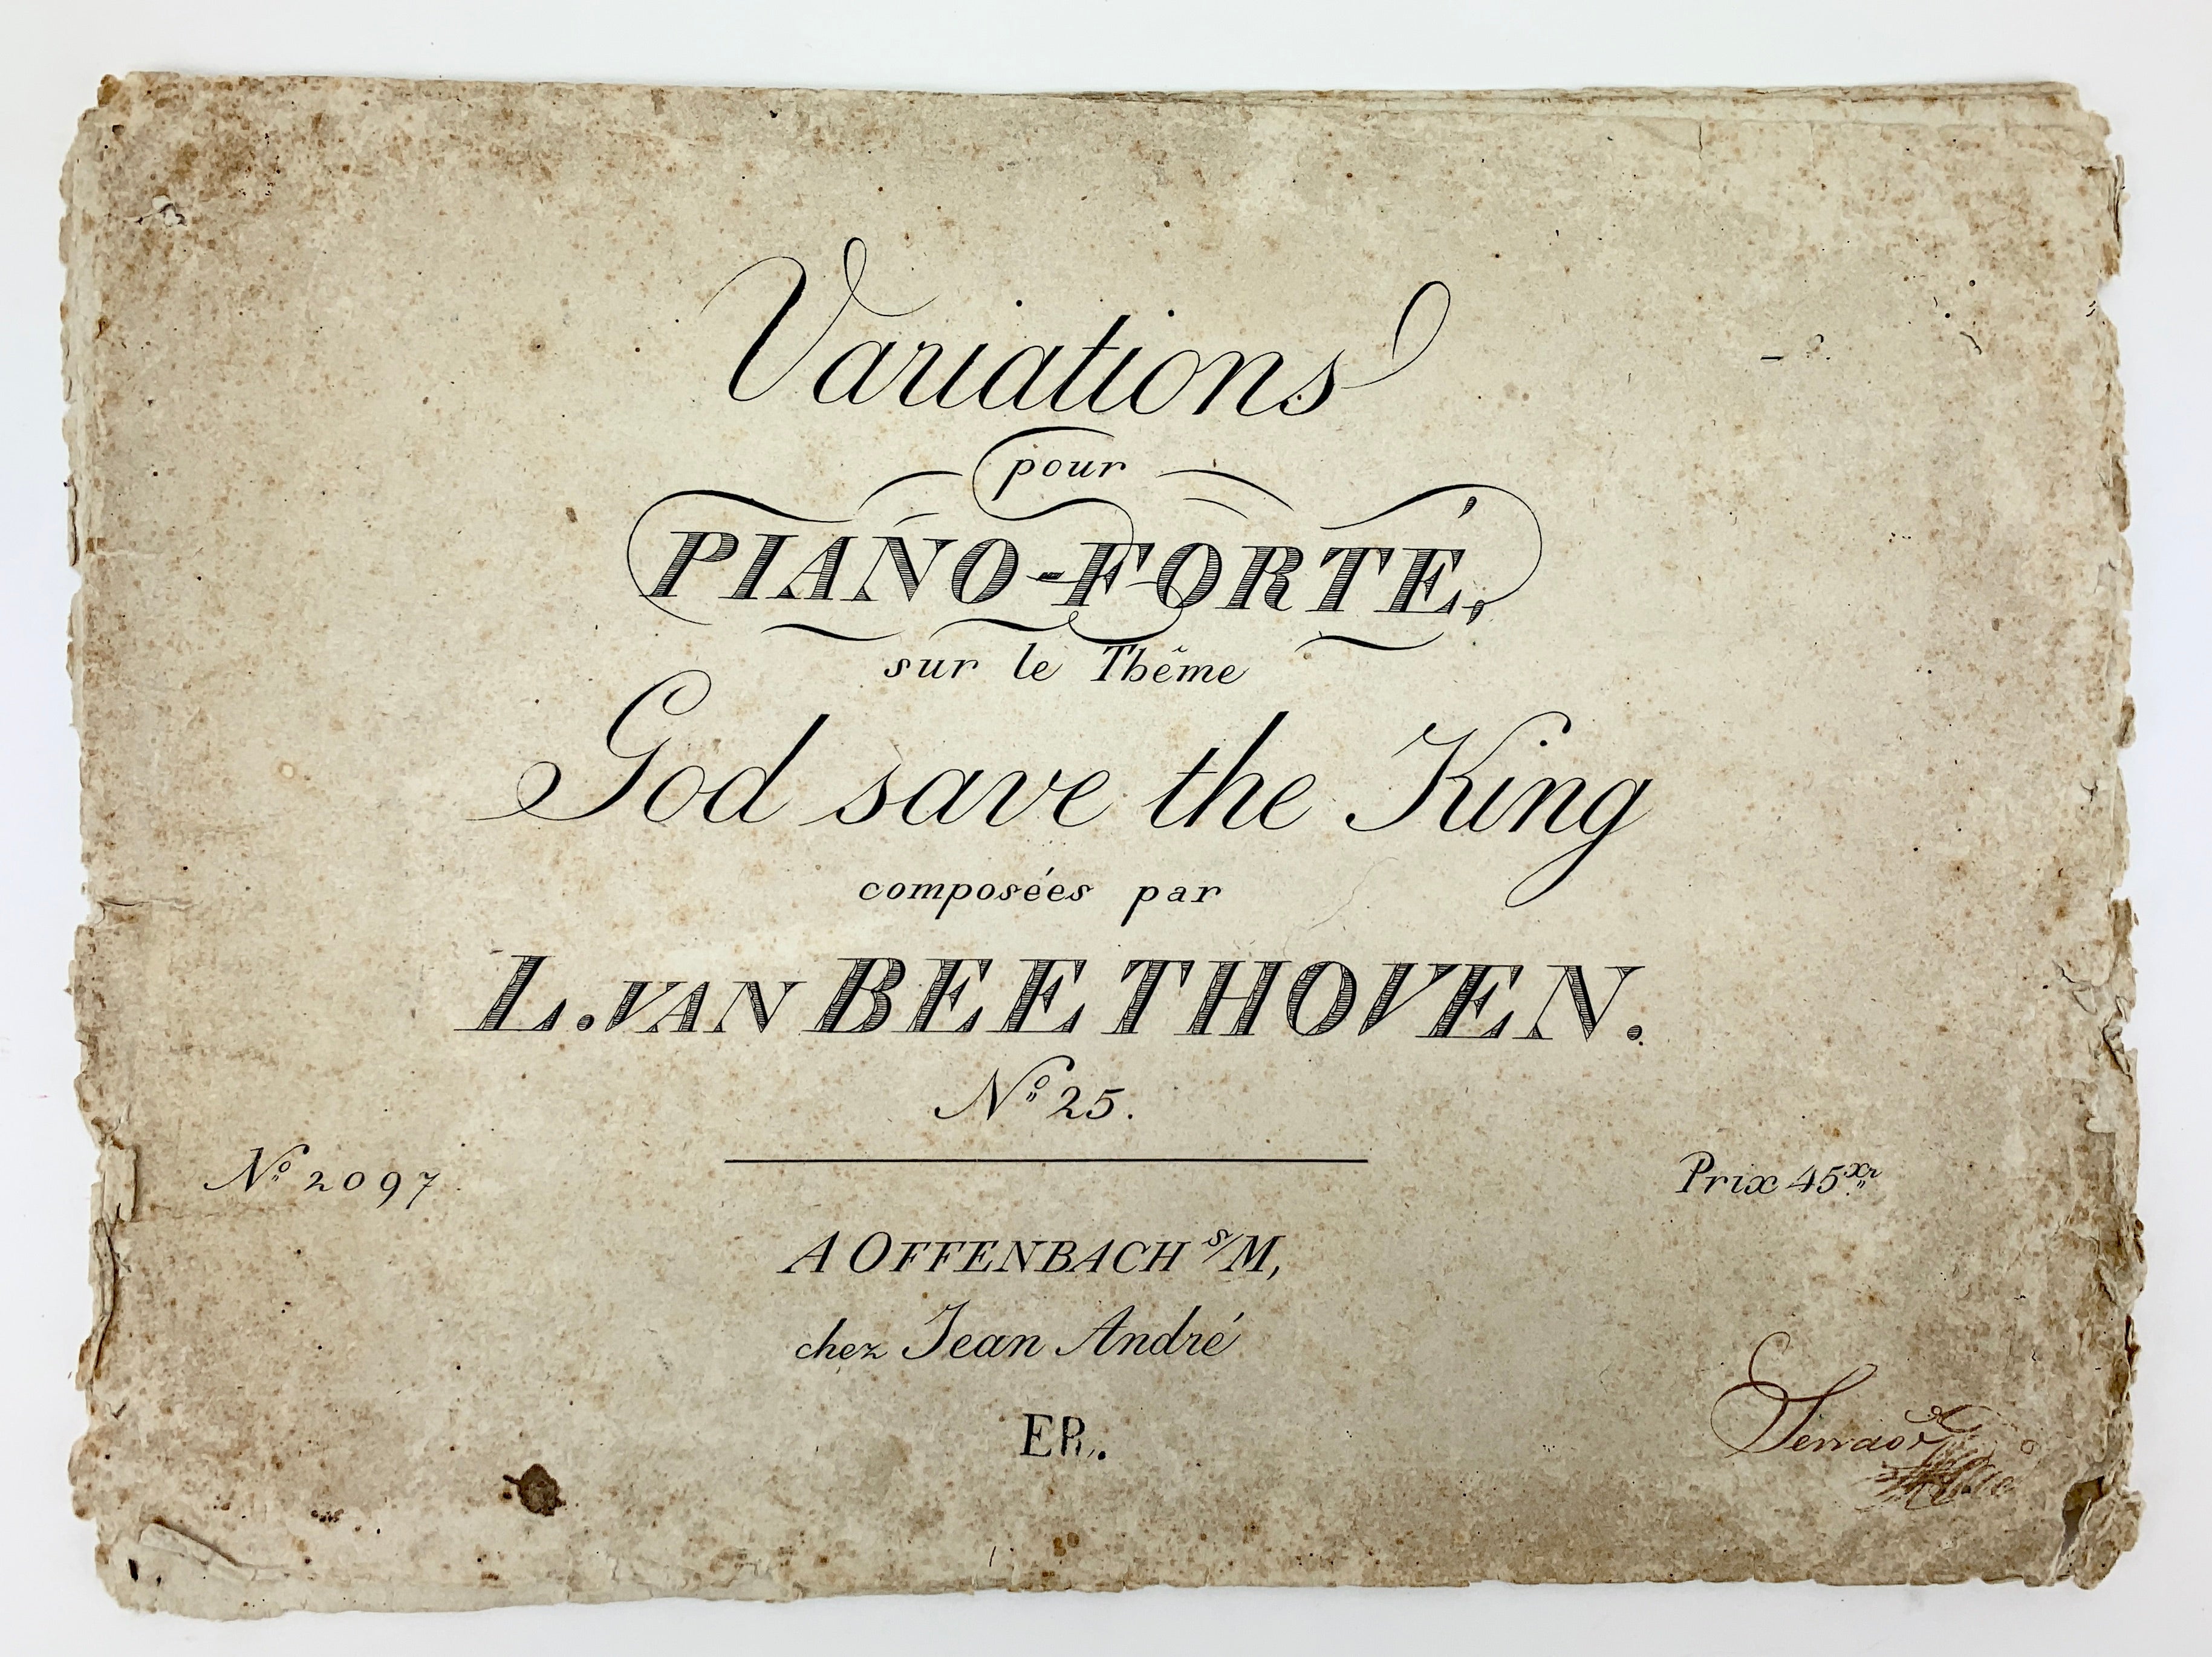 Variations
pour
PIANO-FORTÉ,
sur le Thême
God save the King
composées par
L. VAN BEETHOVEN.
Nº 25.
Nº 2097.
Prix 45 xr
A OFFENBACH s/M,
chez Jean André